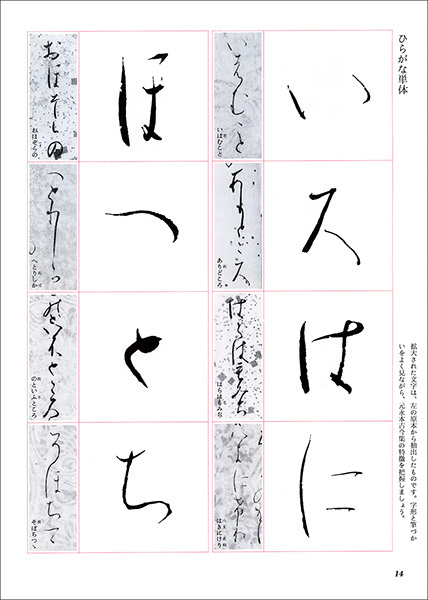 ひらがな単体
拡大された文字は、左の原本から抽出したものです。字形と筆づか
いをよく見ながら、元永本古今集の特徴を把握しましょう。
い
いはむこと
ろ
ありどころ
は
はらはもみぢ
に
はきにけり
ほ
おほぞらの
へ
へとりしか
と
のといふところ
ち
そぼちつゝ
14